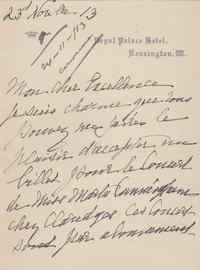 23d Nov 13
24-11-13
Royal Palace Hotel,
Kensington, W.
Mon cher Excellence
je suis charmé que vous
pouvez me faire le
plaisir d'accepter un
billet pour le Concert
de Miss Marta Cunningham
chez Claridge Ces Concerts
sont par abonnement